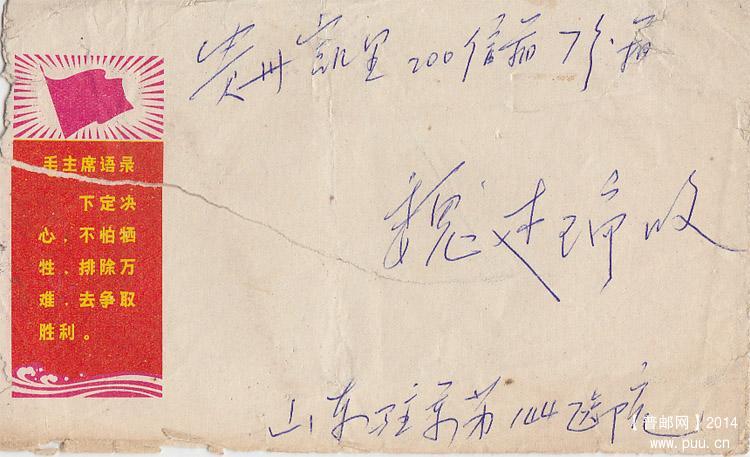 贵州凯里200信箱7分箱
毛主席语录
下定决
心，不怕牺
牲，排除万
难，去争取
胜利。
魏建瑞收
山东驻京第144医院
【普邮网】2014
www.puu.cn